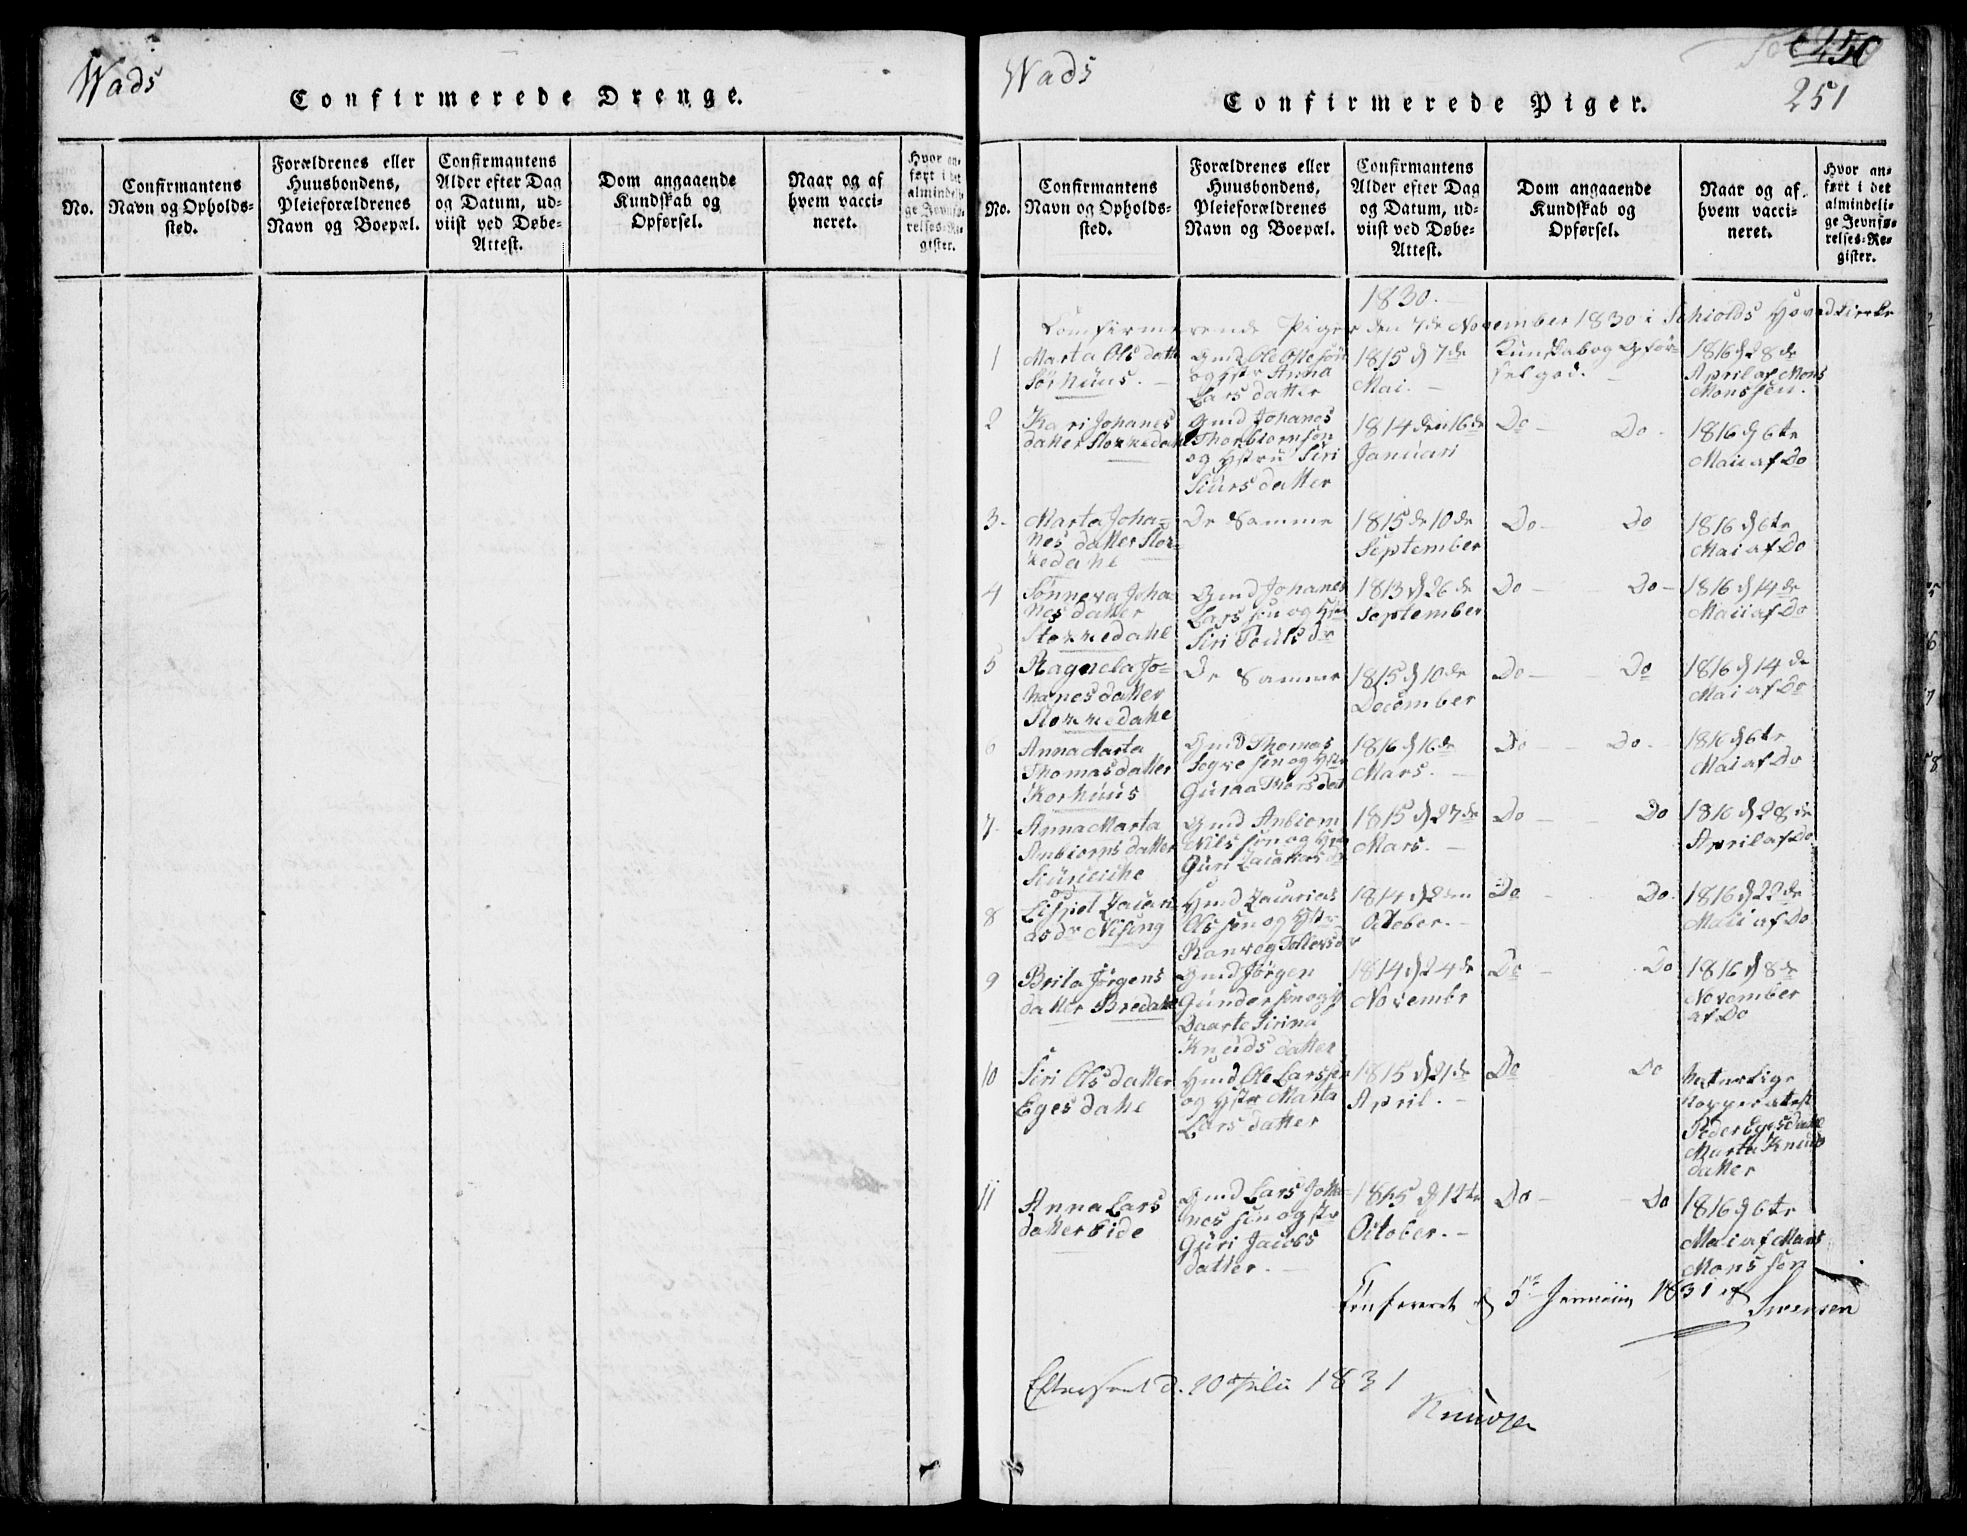 Wads
Confirmerede Drenge.
No.
Confirmantens
Navn og Opholds-
sted.
Forældrenes eller
Huusbondens,
Pleieforældrenes
Navn og Boepæl.
Confirmantens
Alder efter Dag
og Datum, ud-
viist ved Døbe-
Attest.
Dom angaaende
Kundskab og
Opførsel.
Naar og af
hvem vacci-
neret.
Hvor an-
ført i det
almindeli-
ge Jevnfø-
relses-Re-
gister.
Wads
Confirmerede Piger.
250
251
No.
Confirmantens
Navn og Opholds-
sted.
Forældrenes eller
Huusbondens,
Pleieforældrenes
Navn og Boepæl.
Confirmantens
Alder efter Dag
og Datum, ud-
viist ved Døbe-
Attest.
Dom angaaende
Kundskab og
Opførsel.
Naar og af
hvem vacci-
neret.
Hvor an-
ført i det
almindeli-
ge Jevnfø-
relses-Re-
gister.
1830.
Comfirmerende Piger den 7de November 1830 i Schiolds Hovedkierke
1
Marta Ols datter
Sørhuus.
Gmd Ole Olle søn
og Hstr Anna
Lars datter
1815 d 7de
Mai.
Kunskab og Opfør-
sel god.
1816 d 28de
April af Mons
Monssen.
2
Kari Johanes
datter Storkedahl
Gmd Johanes
Thorbiornsøn
og Hstru Siri
Siurs datter
1814 den 16de
Januari
Do Do
1816 d 6te
Maii af Do
3.
Marta Joha-
nes datter Stor-
kedahl
De Samme
1815 de 10de
September
Do Do
1816 d 6te
Mai af Do
4
Sønneva Joha
nes datter
Storkedahl
Gmd Johanes
Lars søn og Hstr
Siri Pouls dr
1813 d 26de
September
Do Do
1816 d 14de
Maii af Do
5
Ragnela Jo-
hanes datter
Storkedahl
De Samme
1815 d 10de
December
Do Do
1816 d 14de
Mai af Do
6
Anna Marta
Thomas datter
Korhuus
Gmd Thomas
søn og Hstr
Guroa Thors dat
1816 d 16de
Mars.
Do Do
1816 d 6te
Mai af Do
7.
Anna Marta
Anbiorns datter
Gmd Anbiorn
Nils søn og Hstr
Guri
1815 d 27de
Mars.
Do Do
1816 d 28de
April af Do
8
as dr
Hmd Zacarias
Ols søn og Hstr
Ranveg Tollevs dr
1814 d
October.
Do Do
1816 d 22de
Maii af Do
9
Brita Jørgens
datter Bredahl
Gmd Jørgen
Gunder søn og H
Daarte Sirina
Knuds datter
1814 d 24de
Novembr
Do Do
1816 d 8de
November
af Do
10
Siri Ols datter
Eges dahl
Hmd Ole Larssøn
og Hstr Marta
Lars datter
1815 d 21de
April.
Do Do
naturlige
Kopper atest
Peder Egesdahl
Marta Knuds
datter
11
Anna Lars
datter Eide
Gmd Lars Joha-
nes søn og str
Guri Jacobs
datter.
1815 d 12te
October.
Do Do
1816 d 6te
Mai af Mons
Mons søn
Confereret d 5te 1831 af
Swensen
Efterseet d. 20 Julii 1831
Knudsen